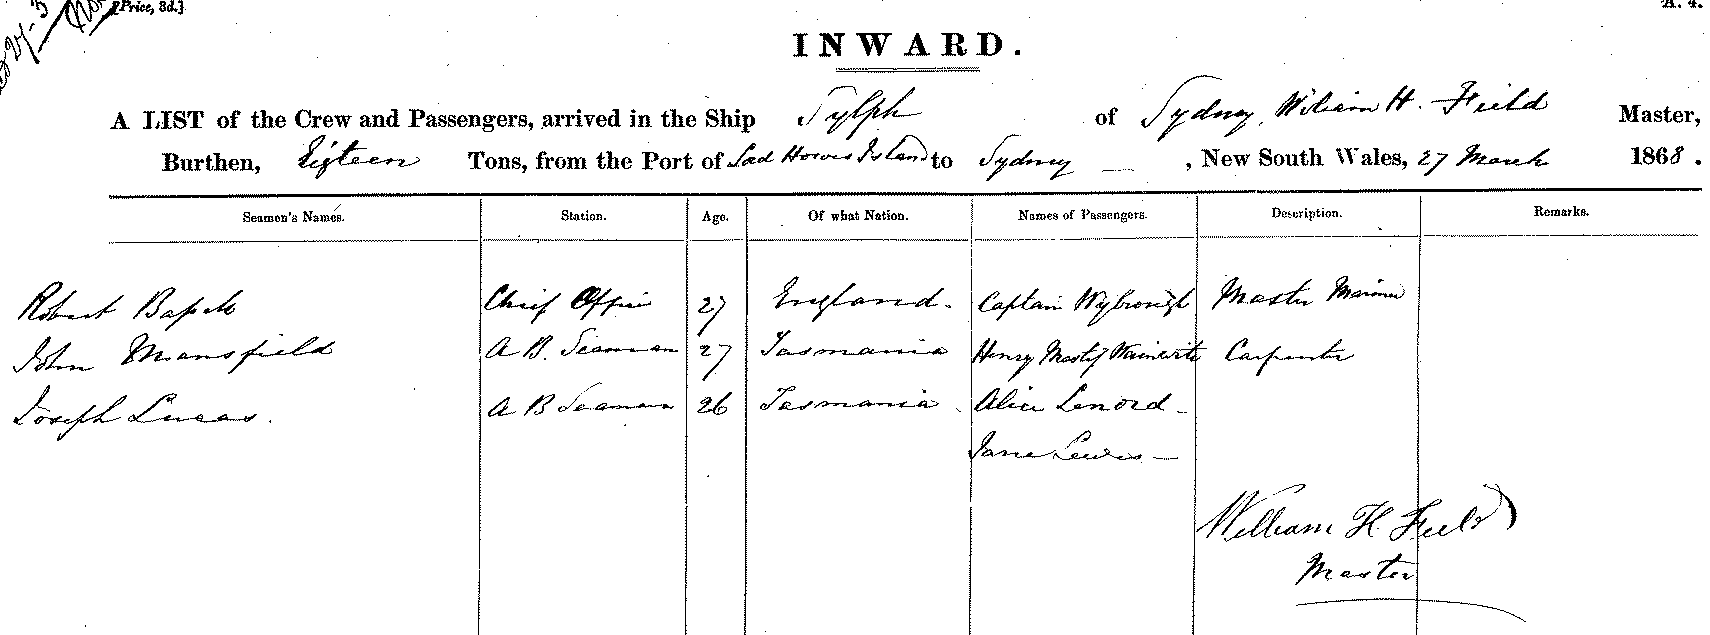 [Price, 3d.]
A. 4.
INWARD.
A LIST of the Crew and Passengers, arrived in the Ship Sylph of Sydney, William H. Field Master,
Burthen, Eigteen Tons, from the Port of Lord Howes Island to Sydney — , New South Wales, 27 March 1868.
Seamen's Names. Station. Age. Of what Nation. Names of Passengers. Description. Remarks.
Robert Chief Officer 27 England - Captain Master Mariner
John Mansfield A B. Seaman 27 Tasmania Henry Carpenter
Joseph Lucas. A B Seaman 26 Tasmania - Alice Lenord -
Jane Lewis -
William H. Field
Master